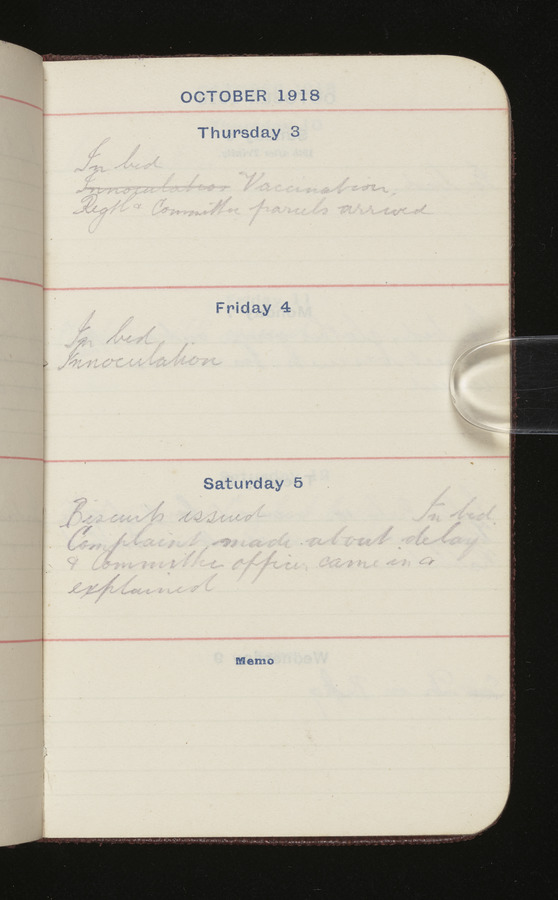 OCTOBER 1918
Thursday 3
In bed
Innoculation Vaccination.
Regtl & Committee parcels arrived
Friday 4
In bed
Innoculation
Saturday 5
Biscuits issued In bed
Complaint made about delay
& Committee officer came in &
explained
Memo